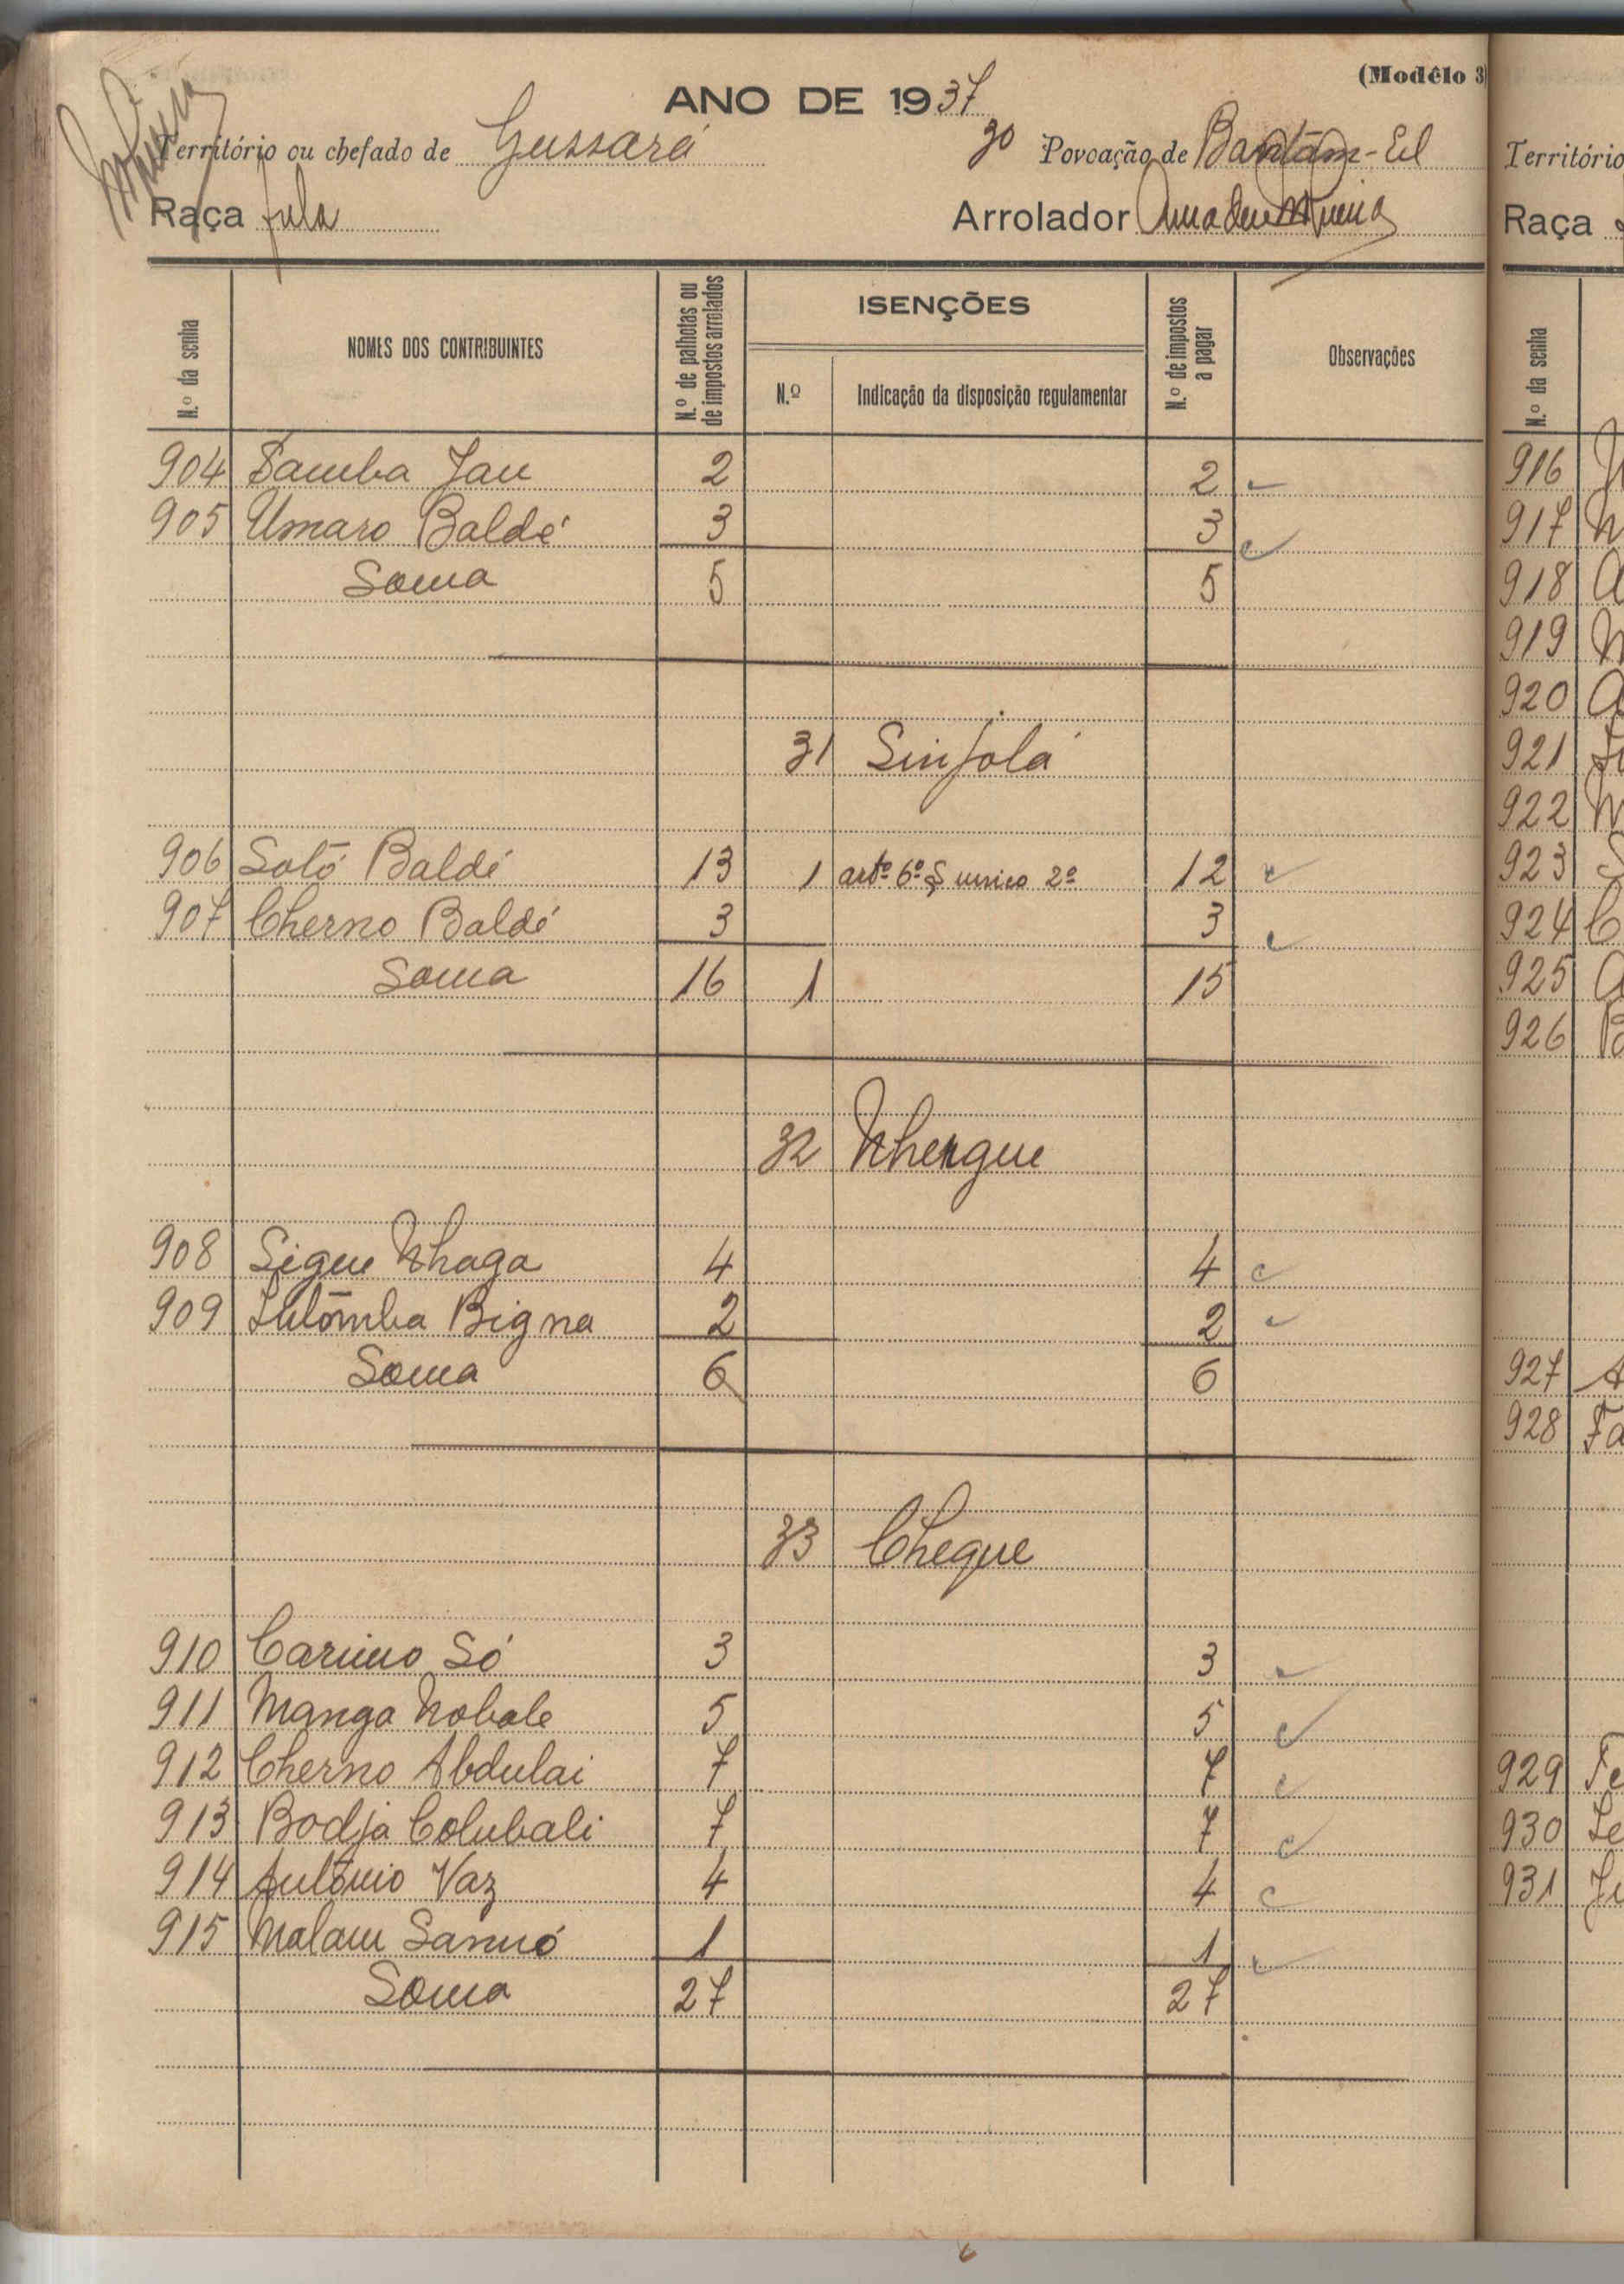 (Modêlo 3)
ANO DE 1937
Território ou chefado de Gussará 30 Povoação de Bantãm-Eel
Raça fula Arrolador Amadeu
N.º da senha NOMES DOS CONTRIBUINTES N.º de palhotas ou de impostos arrolados ISENÇÕES N.º Indicação da disposição regulamentar N.º de impostos a pagar Observações
904 Samba Jau 2 2
905 Umaro Baldé 3 3
Soma 5 5
31 Sinjolá
906 Saló Baldé 13 1 artº 6º § unico 2º 12
907 Cherno Baldé 3 3
Soma 16 1 15
32 Nhengue
908 Sigue Nhaga 4 4
909 Bigna 2 2
Soma 6 6
33 Cheque
910 Carimo Só 3 3
911 Manga Nobale 5 5
912 Cherno Abdulai 7 7
913 Bodja Colubali 7 7
914 António Vaz 4 4
915 Malam Sannó 1 1
Soma 27 27
Território
Raça
N.º da senha
916
917
918
919
920
921
922
923
924
925
926
927
928
929
930
931